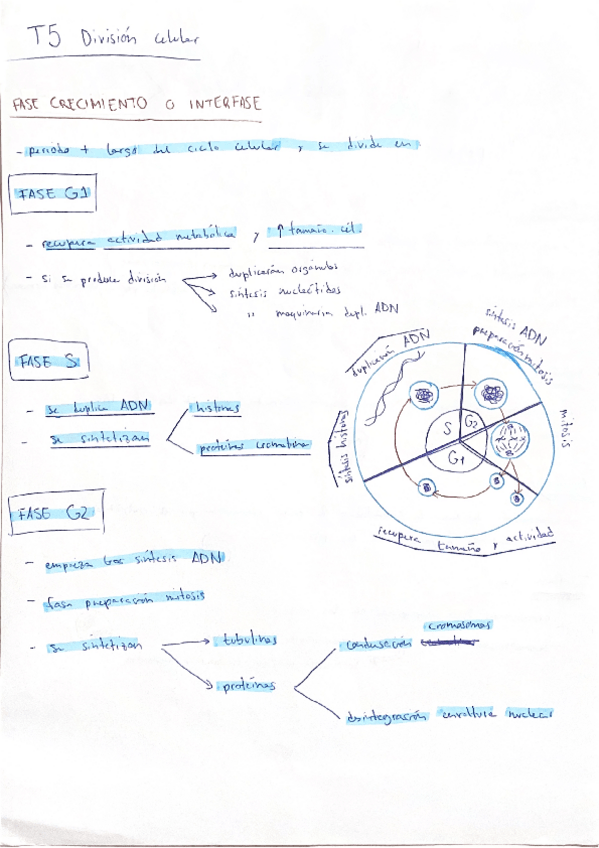 T5 División celular
FASE CRECIMIENTO O INTERFASE
- periodo + largo del ciclo celular y se divide en
FASE G1
- recupera actividad metabólica y ↑ tamaño cél.
- si se produce división → duplicarán orgánulos
→ síntesis nucleótidos
→ " maquinaria dupl. ADN
FASE S
- se duplica ADN
- se sintetizan
histonas
proteínas cromatina
duplicación ADN
síntesis histonas
síntesis ADN
preparación mitosis
mitosis
recupera tamaño y actividad
S
G2
G1
FASE G2
- empieza tras síntesis ADN
- fase preparación mitosis
- se sintetizan → tubulinas
→ proteínas
cromosomas
desintegración envoltura nuclear